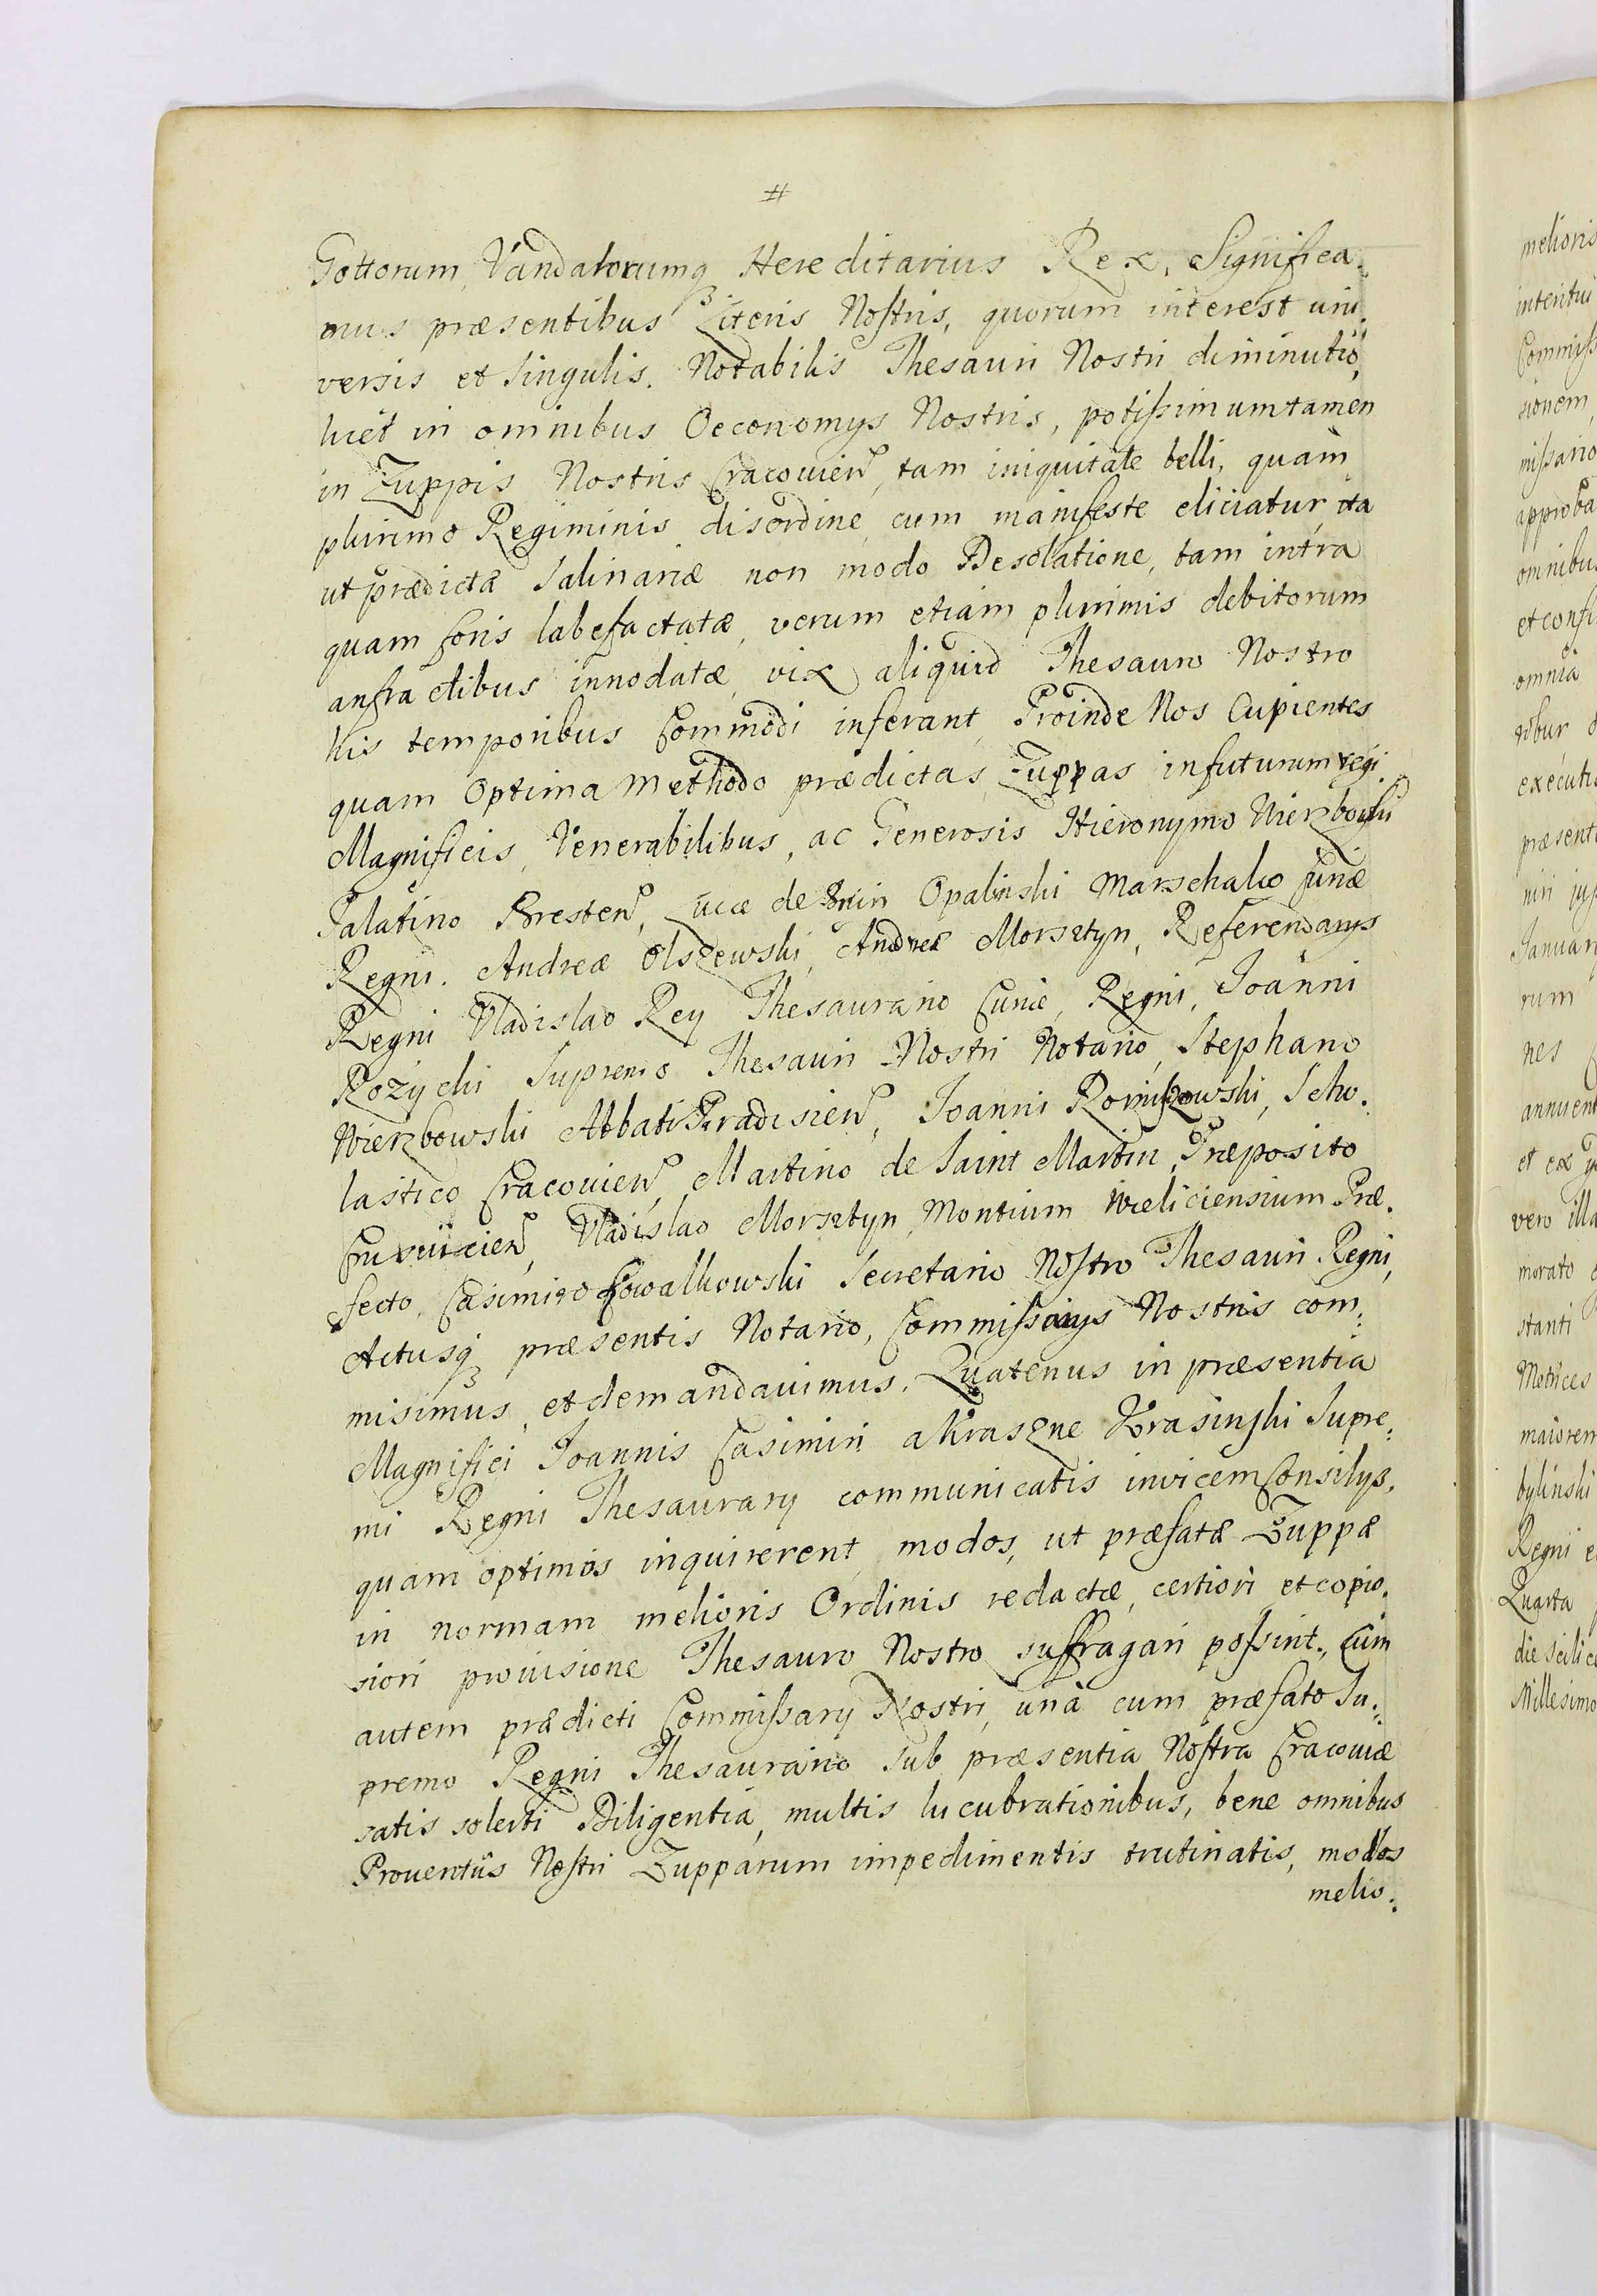 #
Gottorum, Vandalorumq₃ Hereditarius Rex, Significa:
mus præsentibus Literis Nostris, quorum interest uni:
versis et singulis. Notabilis Thesauri Nostri diminutio,
licet in omnibus Oeconomys Nostris, potissimum tamen
in Zuppis Nostris Cracovien, tam iniquitate belli, quàm
plurimo Regiminis disordine, cum manifeste eliciatur, ita
ut prædictæ Salinariæ non modo Desolatione, tam intra
quam foris labefactatæ, verum etiam plurimis debitorum
anfractibus innodatæ, vix aliquid Thesauro Nostro
his temporibus Commodi inferant, Proinde Nos Cupientes
quam Optima Methodo prædictas Zuppas in futurum regi
Magnificis, Venerabilibus, ac Generosis Hieronymo Wierzbowski
Palatino Bresten, Lucæ de Bnin Opalinski Marschalco Curiæ
Regni. Andreæ Olszewski, Andreæ Morsztyn, Referendarys
Regni Vladislao Rey Thesaurario Curiæ, Regni, Joanni
Rożycki Supremo Thesauri Nostri Notario, Stephano
Wierzbowski Abbati Paradisien, Joanni Romiszowski, Scho:
lastico Cracovien, Martino de Saint Martin, Præposito
Crusvicien, Vladislao Morsztyn, Montium Wieliciensium Præ:
fecto, Casimiro Kowalkowski Secretario Nostro Thesauri Regni,
Actusq₃ præsentis Notario, Commissarys Nostris com:
misimus, et demandavimus. Quatenus in præsentia
Magnifici Joannis Casimiri a Kraszne Krasinski Supre:
mi Regni Thesaurary communicatis invicem Consilys,
quam optimos inquirerent modos, ut præfatæ Zuppæ
in normam melioris Ordinis redactæ, certiori, et copio:
siori provisione Thesauro Nostro suffragari possint, Cùm
autem prædicti Commissary Nostri, unà cum præfato Su:
premo Regni Thesaurario sub præsentia Nostra Cracoviæ
satis solerti Diligentia, multis lucubrationibus, bene omnibus
Proventûs Nostri Zupparum impedimentis trutinatis, modos
melio:
melioris
interitui
Commiss
sionem,
missario
approba
omnibus
et consi
omnia
execut
præsent
Januar
rum
nes
annuent
et ex
vero illa
morato
stanti
Motrices
maiorem
bylinski
Regni e
Quarta
die scilice
Millesimo